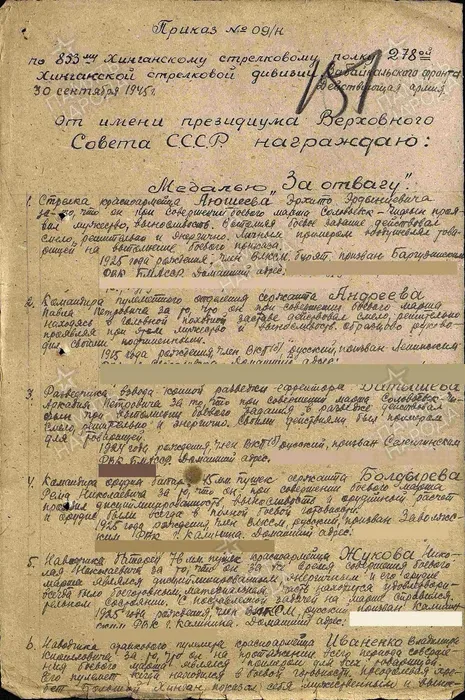 Приказ № 09/н
по 853му Хинганскому стрелковому полку 278ой
Хинганской стрелковой дивизии Забайкальского фронта
30 сентября 1945г. Действующая армия
151
От имени президиума Верховного
Совета СССР награждаю:
Медалью „За отвагу“.
1. Стрелка красноармейца Аюшеева Эрдыниевича
за то, что он при совершении боевого марша Соловьевск-
мужество, выносливость. Выполняя боевые задание действовал
смело, решительно и энергично. Личным примером воодушевлял това-
рищей на выполнение боевого приказа.
1925 года рождения, член ВЛКСМ, бурят, призван Баргузинским
РВК БМАССР. Домашний адрес:
2. Командира пулеметного отделения сержанта Андреева
Павла Петровича за то, что он при совершении боевого марша
находясь в головной походной заставе действовал смело, решительно
проявляя при этом мужество и выносливость. Образцово руково-
дил своими подчиненными.
1915 года рождения, член ВКП(б), русский, призван
Домашний адрес:
3. Разведчика взвода конной разведки ефрейтора
Петровича за то, что при совершении марша Соловьевск-
при выполнении боевого задания в разведке действовал
смело, решительно и энергично. Своими действиями был примером
для товарищей.
1924 года рождения, член ВКП(б), русский, призван Селенгинским
РВК БМАССР. Домашний адрес:
4. Командира орудия батареи 45мм пушек сержанта Болдырева
Николаевича за то, что он при совершении боевого марша
показал дисциплинированность, выносливость и орудийный расчет
и орудие были всегда в полной боевой готовности.
1925 года рождения, член ВЛКСМ, русский, призван Заволжс-
ким РВК г. Калинина. Домашний адрес:
5. Наводчика батареи 76мм пушек красноармейца Жукова Нико-
лая Николаевича за то, что он за время совершения боевого
марша являлся дисциплинированным, энергичным и его орудие
всегда было боеготовным, материальная часть находится в удовлетвори-
тельном состоянии. С поставленной задачей на марше справился.
1925 года рождения, член ВЛКСМ, русский, призван Калинин-
ским РВК г. Калинина. Домашний адрес:
6. Наводчика станкового пулемета красноармейца Иваненко Владимира
за то, что он на период совершения
боевого марша являлся примером для всех товарищей.
Его пулемет всегда находился в боевой готовности, преодолевая хре-
бет Большой Хинган, показал себя мужественным и вынос-